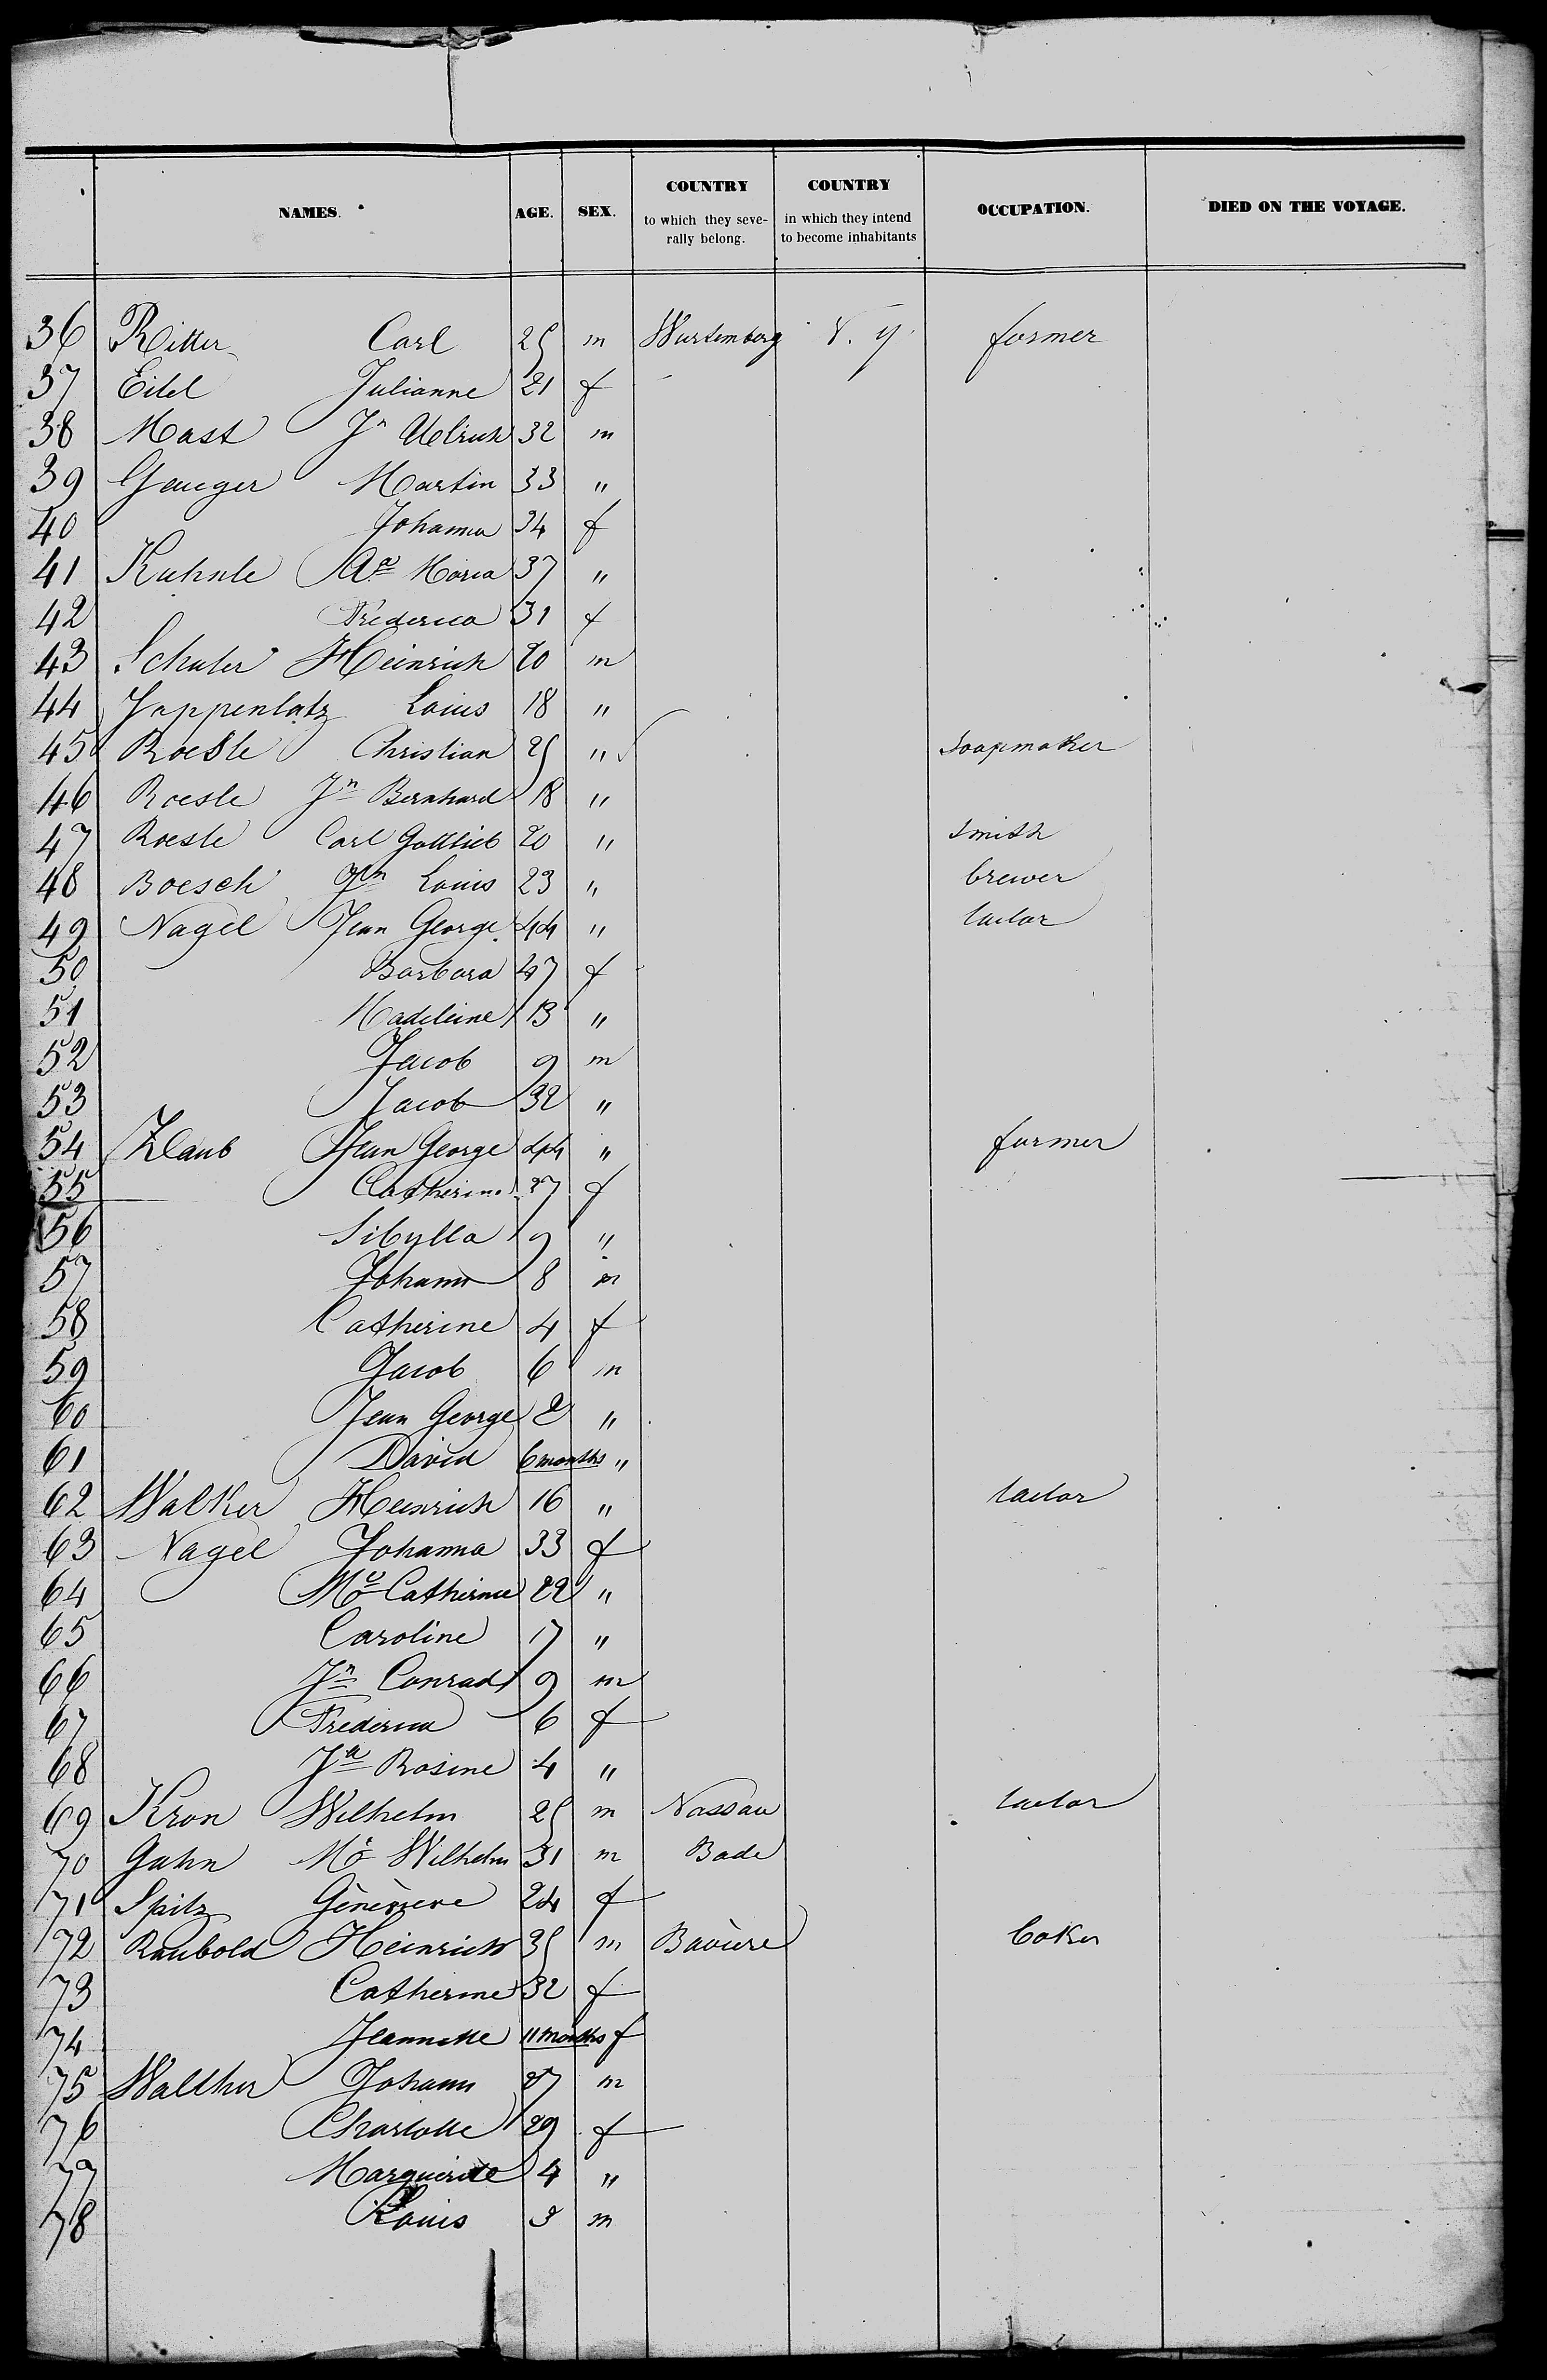 NAMES. AGE. SEX. COUNTRY to which they seve- rally belong. COUNTRY in which they intend to become inhabitants OCCUPATION. DIED ON THE VOYAGE.
36 Ritter Carl 25 m Wurtemberg N. Y. farmer
37 Eitel Julianne 21 f
38 Mast Jn Uelrich 32 m
39 Gaeuger Martin 33 "
40 Johanna 34 f
41 Kuhnle Ae Maria 37 "
42 Frederica 31 f
43 Schuler Heinrich 20 m
44 Jappenlatz Louis 18 "
45 Roesle Christian 25 " soapmaker
46 Roesle Jn Bernhard 18 "
47 Roesle Carl Gottlieb 20 " smith
48 Boesch Jn Louis 23 " brewer
49 Nagel Jean George 44 " tailor
50 Barbara 47 f
51 Madeleine 13 "
52 Jacob 9 m
53 Jacob 32 "
54 Klaub Jean George 44 " farmer
55 Catherine 37 f
56 Sibylla 9 "
57 Johann 8 m
58 Catherine 4 f
59 Jacob 6 m
60 Jean George 2 "
61 David 6 months "
62 Walker Heinrich 16 " tailor
63 Nagel Johanna 33 f
64 Me Catherine 22 "
65 Caroline 17 "
66 Jn Conrad 9 m
67 Frederica 6 f
68 Ja Rosine 4 "
69 Kron Wilhelm 25 m Nassau tailor
70 Gahn Mc Wilhelm 31 m Bade
71 Spitz Génèvieve 24 f
72 Raubold Heinrich 35 m Bavière baker
73 Catherine 32 f
74 Jeannette 11 months f
75 Walther Johann 27 m
76 Charlotte 29 f
77 Marguerite 4 "
78 Louis 3 m